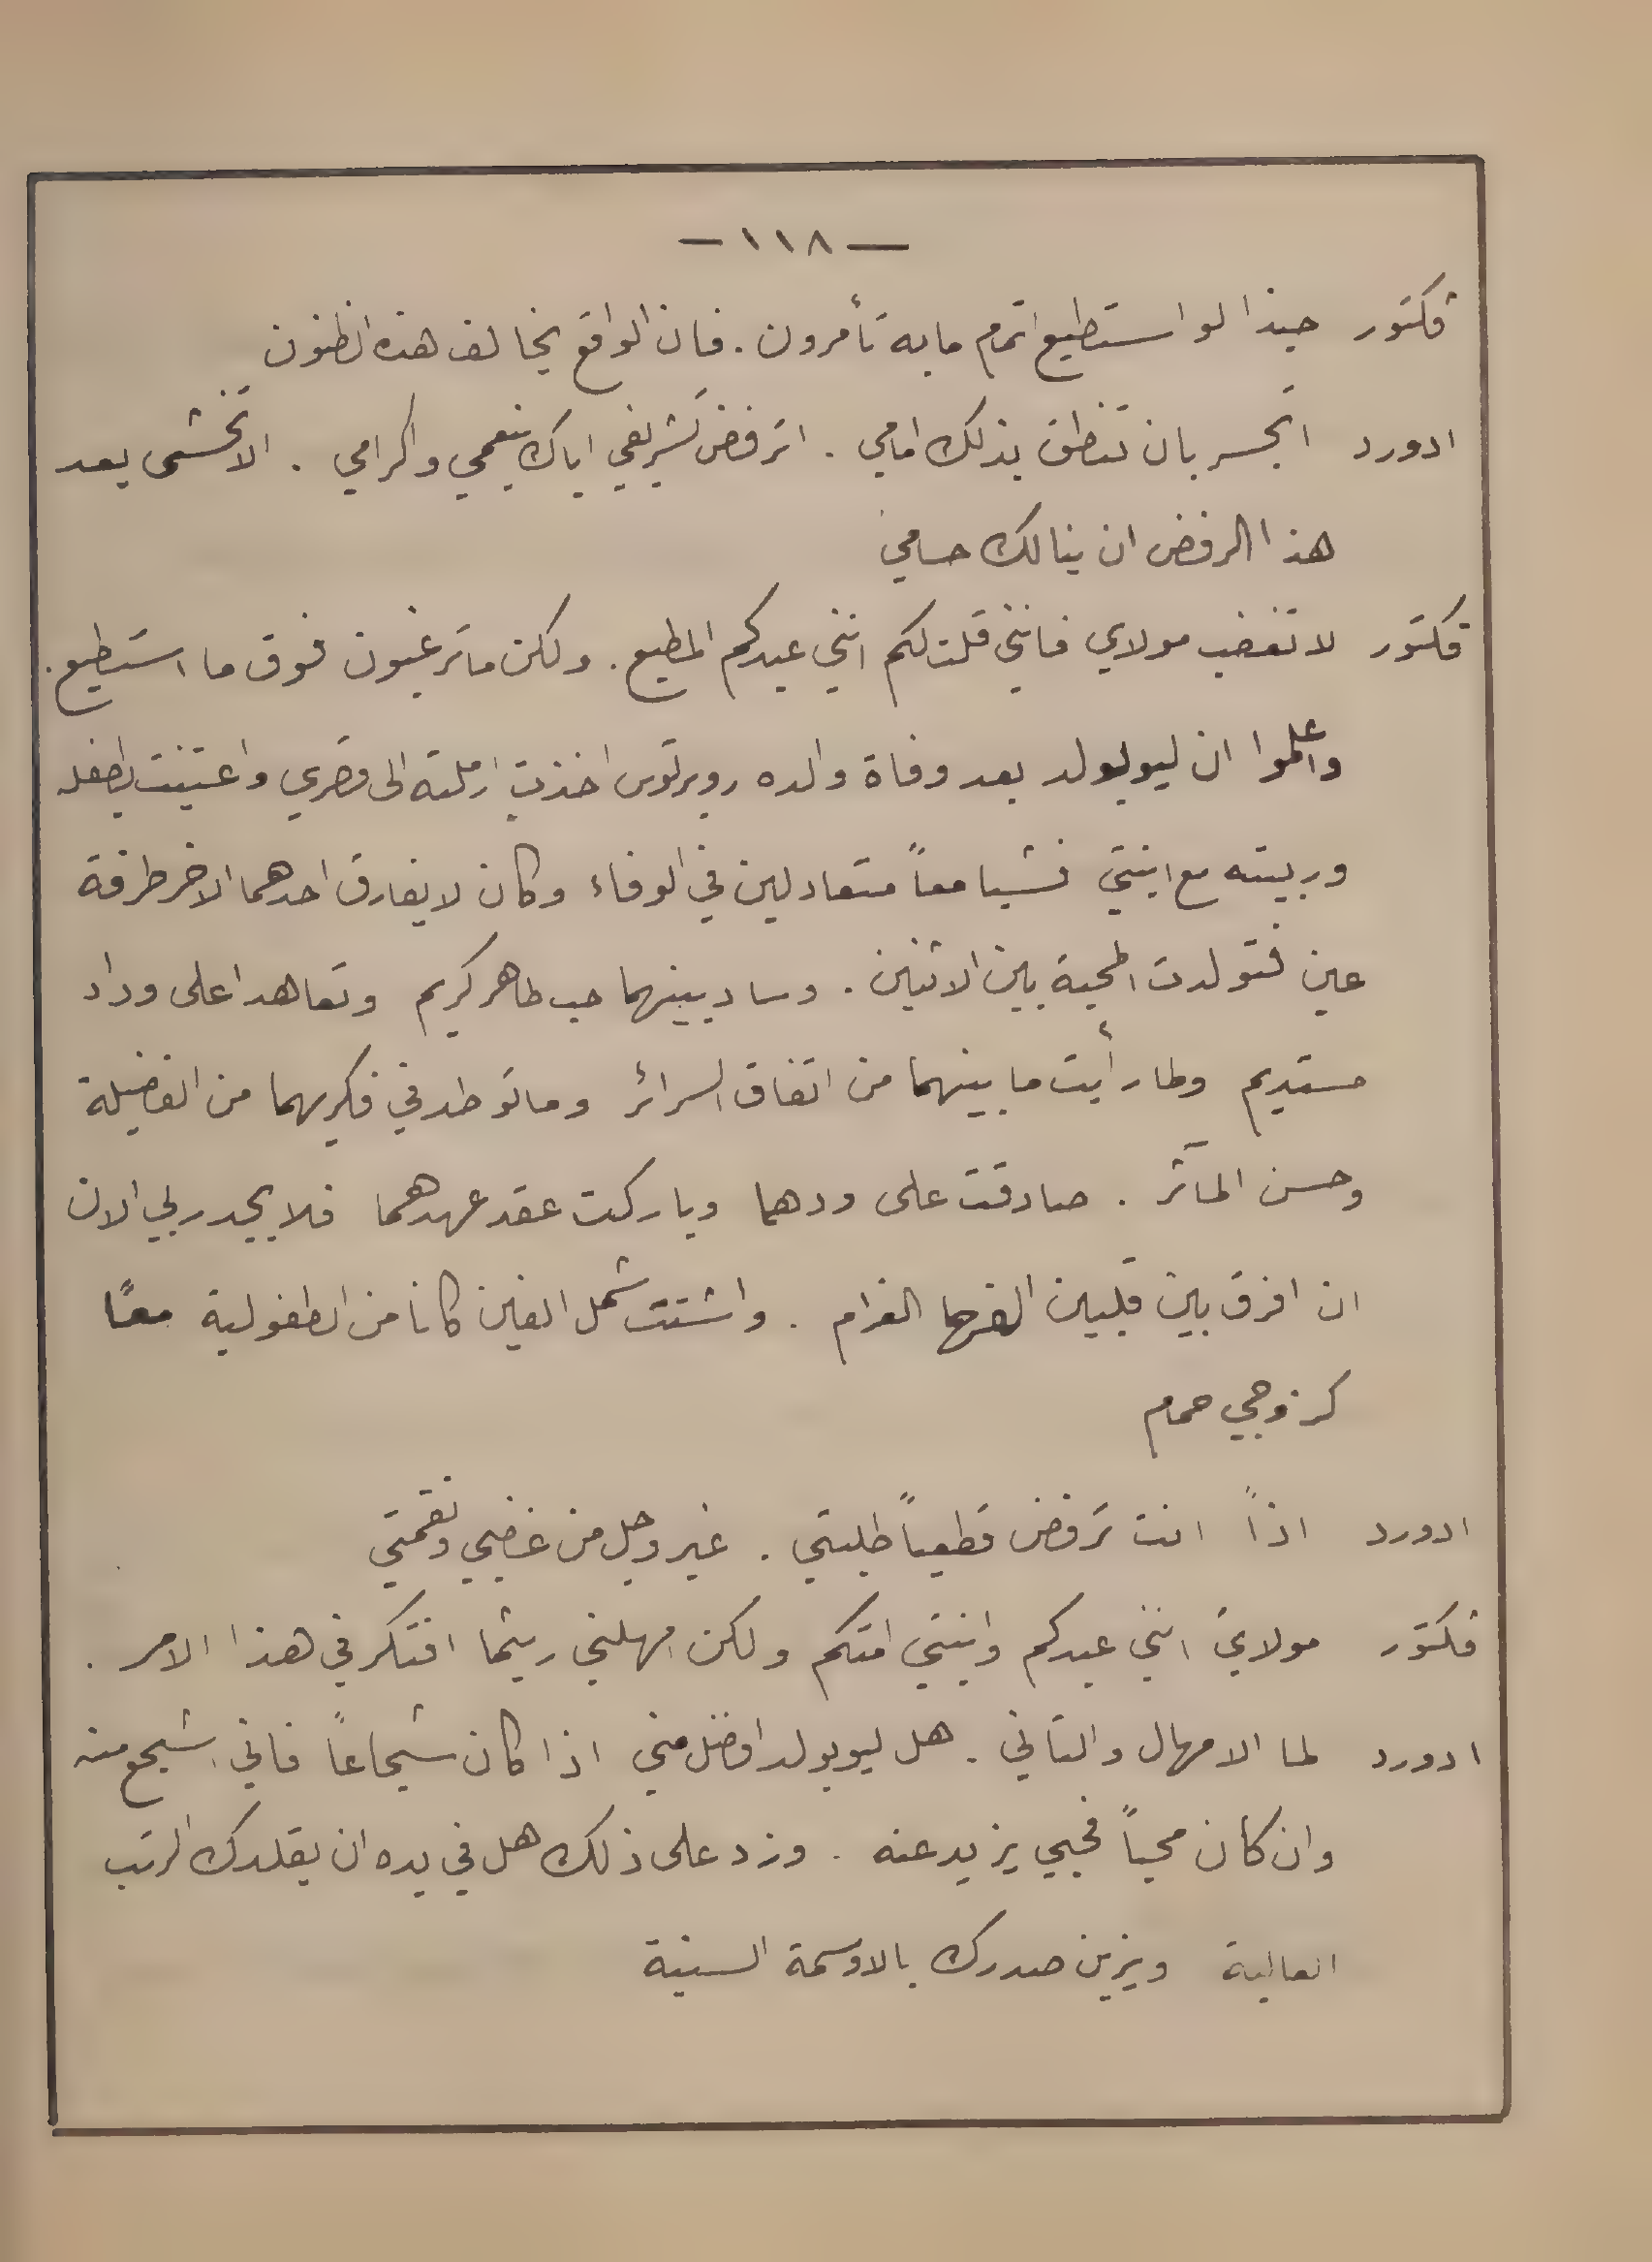 — ١١٨ —
ڤكتور حبذا لو استطيع اتمام ما به تأمرون . فان الواقع يخالف هذه الظنون
ادورد اتجسر بان تنطق بذلك امامي . اترفض تشريفي اياك بنعمي واكرامي . الا تخشى بعد
هذا الرفض ان ينالك حسامي
ڤكتور لا تغضب مولاي فانني قلت لكم انني عبدكم المطيع . ولكن ما ترغبون فوق ما استطيع .
واعلموا ان ليوبولد بعد وفاة والده روبرتوس اخذت ارملته الى قصري واعتنيت بطفله
وربيته مع ابنتي فشبا معاً متعادلين في الوفاء وكان لا يفارق احدهما الاخر طرفة
عين فتولدت المحبة بين الاثنين . وساد بينهما حب طاهر كريم وتعاهدا على وداد
مستديم ولما رأيت ما بينهما من اتفاق السرائر وما توطد في فكريهما من الفضيلة
وحسن المآثر . صادقت على ودهما وباركت عقد عهدهما فلا يجدر بي الان
ان افرق بين قلبين الفهما الغرام . واشتت شمل الفين كانا من الطفولية معاً
كزوجي حمام
ادورد اذاً انت ترفض قطعياً طلبتي . غير وجل من غضبي ونقمتي
ڤكتور مولاي انني عبدكم وابنتي امتكم ولكن امهلني ريثما افتكر في هذا الامر .
ادورد لما الامهال والتاني . هل ليوبولد افضل مني اذا كان شجاعاً فاني اشجع منه
وان كان محباً فحبي يزيد عنه . وزد على ذلك هل في يده ان يقلدك الرتب
العالية ويزين صدرك بالاوسمة السنية